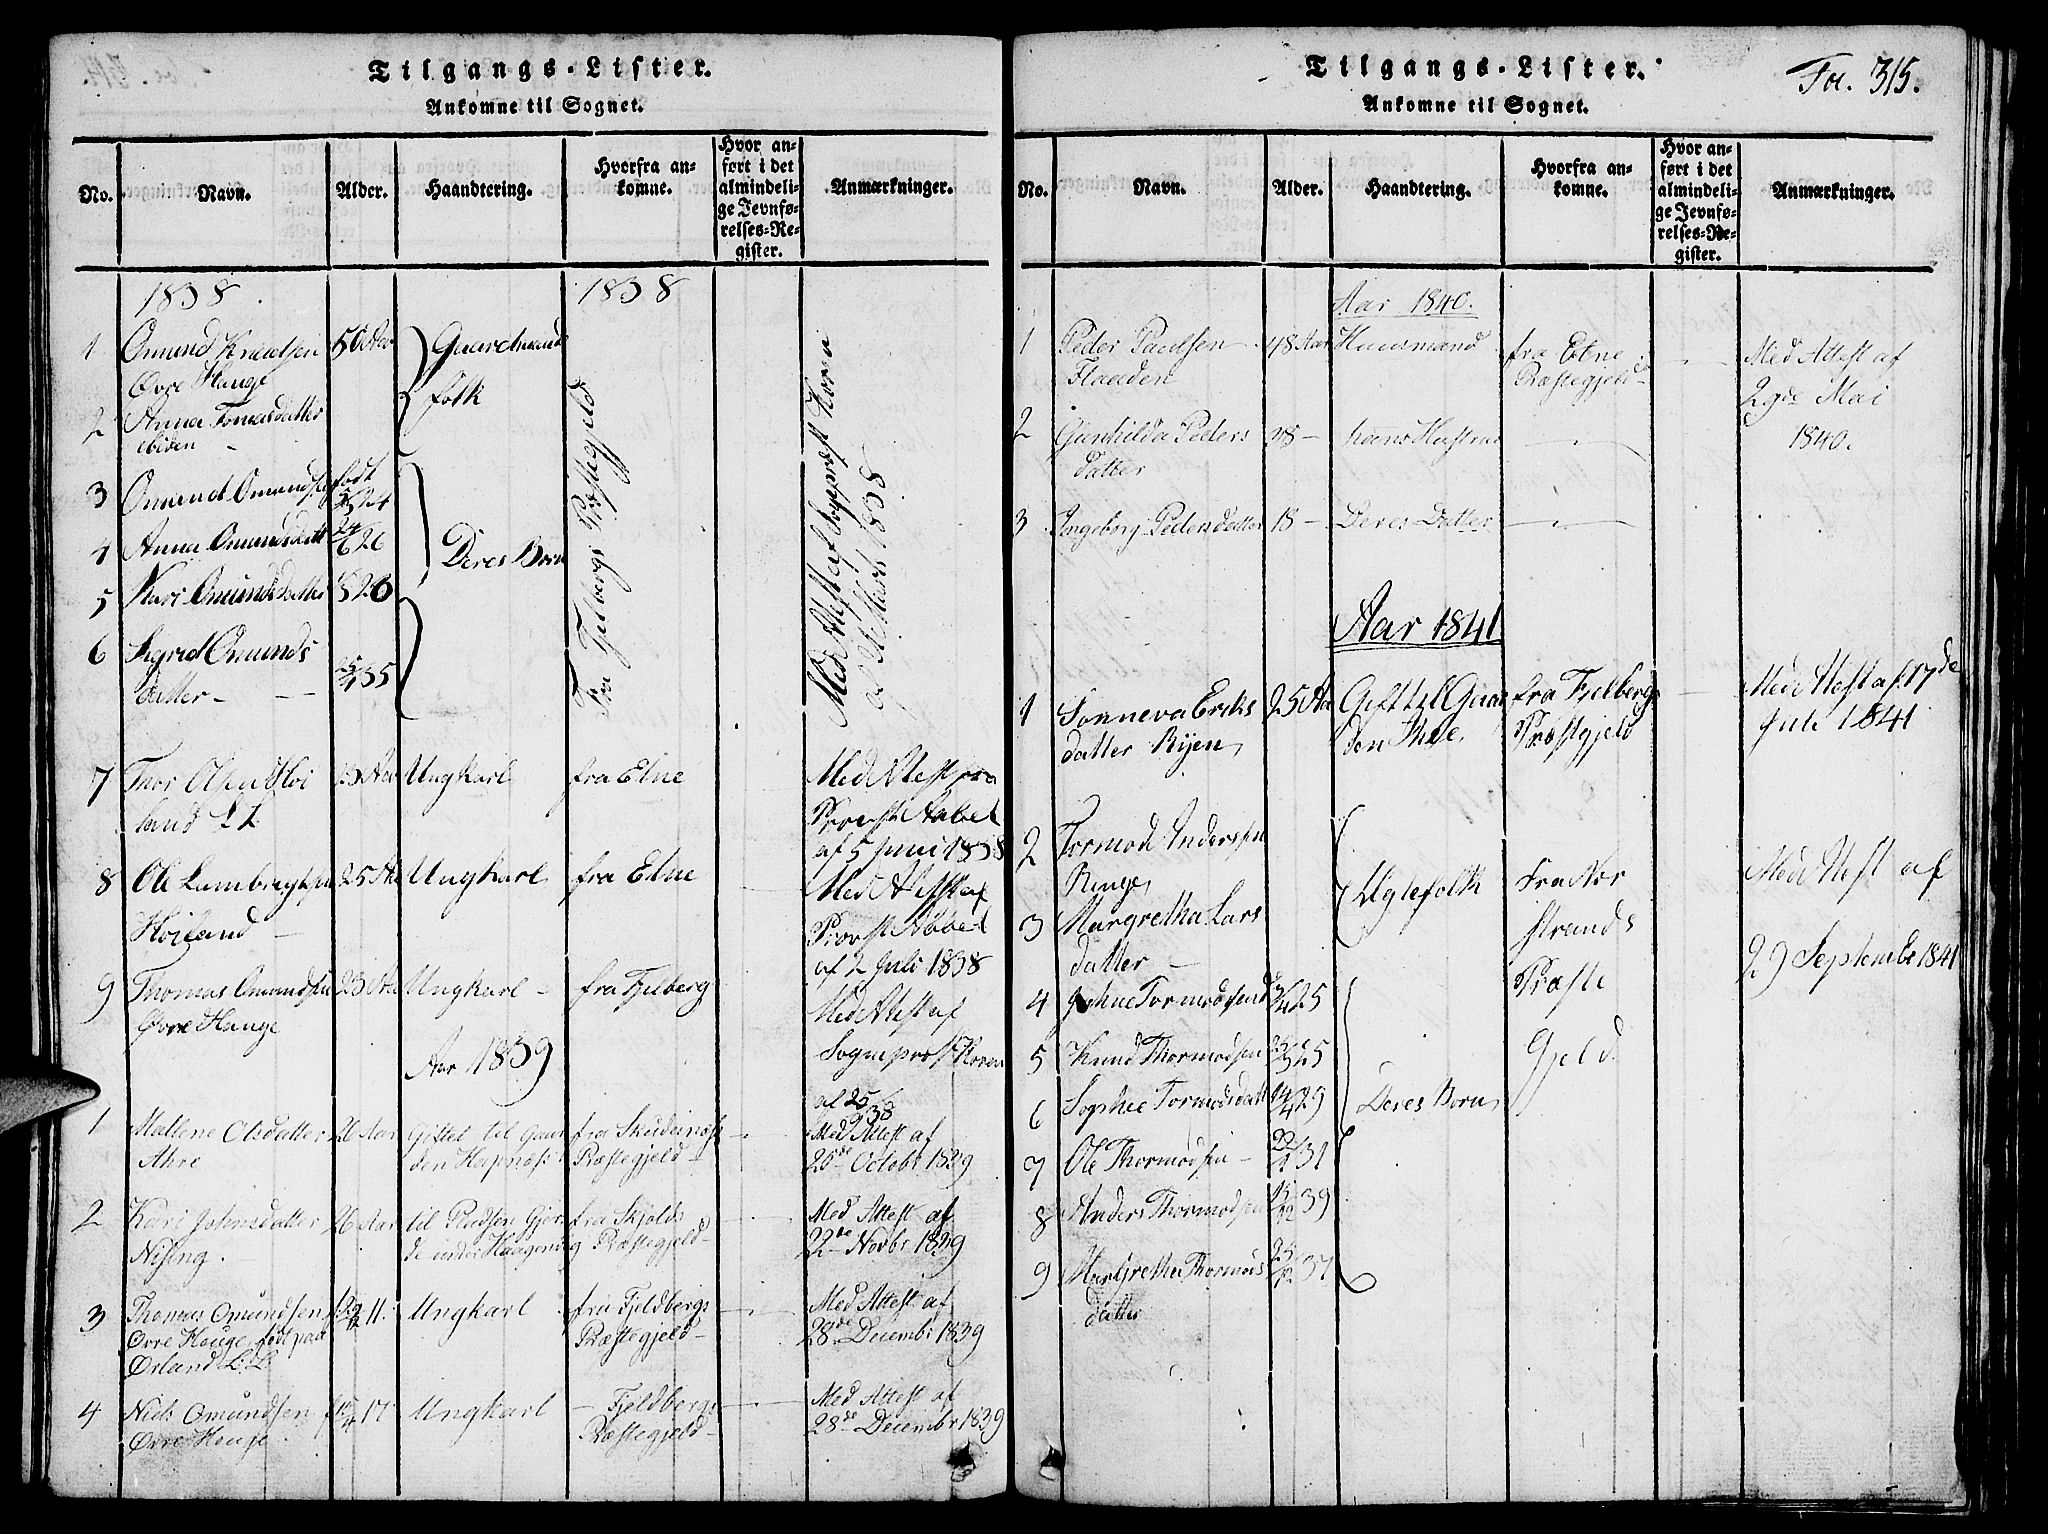 Tilgangs-Lister.
Ankomne til Sognet.
No.
Navn.
Alder.
Haandtering.
Hvorfra an-
komne.
Hvor an-
ført i det
almindeli-
ge Jevnfø-
relses-Re-
gister.
Anmærkninger.
1838.
1838
1 Omund Knudsen 50 Aar Gaardmands
Øvre Hauge folk
2 Anna Tomasdatter
ibiden -
3 Omund Omundsen født
24
4 Anna Omundsdatt 24/6 26 Deres Børn
5 Kari Omundsdatter
6 Sigrid Omunds
datter - 35
Fra Fjelbergs Præstegjeld
Med Attest af Sognepræst Koren
af Marts 1838
7 Thor Olsen Høi Ungkarl fra Etne Med Attest fra
land Provst Aabel
af 5 Juni 1838
8 Ole Lambregtsen 25 Aar Ungkarl fra Etne Med Attest af
Høiland - Provst Aabel
af 2 Juli 1838
9 Thomas Omundsen 23 Aar Ungkarl - fra Fjelberg Med Attest af
Øvre Hauge Sognepræst Koren
af 25
Aar 1839
1 Mallene Olsdatter 26 Aar Giftet til Gaar fra Skudenæs Med Attest af
Ahre den Præstegjeld - 25de Octobr 1839
2 Kari Johnsdatter 26 Aar til Pladsen Gjer fra Skjolds Med Attest af
Nising. de under Præstegjeld - 22de Novbr 1839
3 Thomas Omundsen 11. Ungkarl fra Fjeldbergs Med Attest af
Øvre Hauge født paa Præstegjeld - 28de Decembr 1839
Ørland
4 Niels Omundsen 17 Ungkarl - Fjeldbergs Med Attest af
Øvre Hauge. Præstegjeld - 28de Decembr 1839
Tilgangs-Lister.
Fol. 315.
Ankomne til Sognet.
No.
Navn.
Alder.
Haandtering.
Hvorfra an-
komne.
Hvor an-
ført i det
almindeli-
ge Jevnfø-
relses-Re-
gister.
Anmærkninger.
Aar 1840.
1 Peder Paulsen 48 Aar Huusmand fra Etne Med Attest af
Flaaden Præstegjeld - 29de Mai
2 Gunhilda Peders 48 - hans Hustrue 1840.
datter
3 Ingeborg Pedersdatter 18 - Deres Datter
Aar 1841
1 Sønneva Eriks 25 Aar Gift til Gaar fra Fjelbergs Med Attest af 17de
datter Ryen den Præstgjeld Juli 1841
2 Tormod Anderssen
Ringe
3 Margretha Lars Fra Nær
datter - strands
Præste
Gjeld
Med Attest af
29 September 1841
4 Johne Tormodsen 25
5 Knud Thormodsen 25
6 Sophie Tormodsdatt 29 Deres Børn
7 Ole Thormodsen - 31
8 Anders Thormodsen 39
9 Margretha Thormods 37
datter